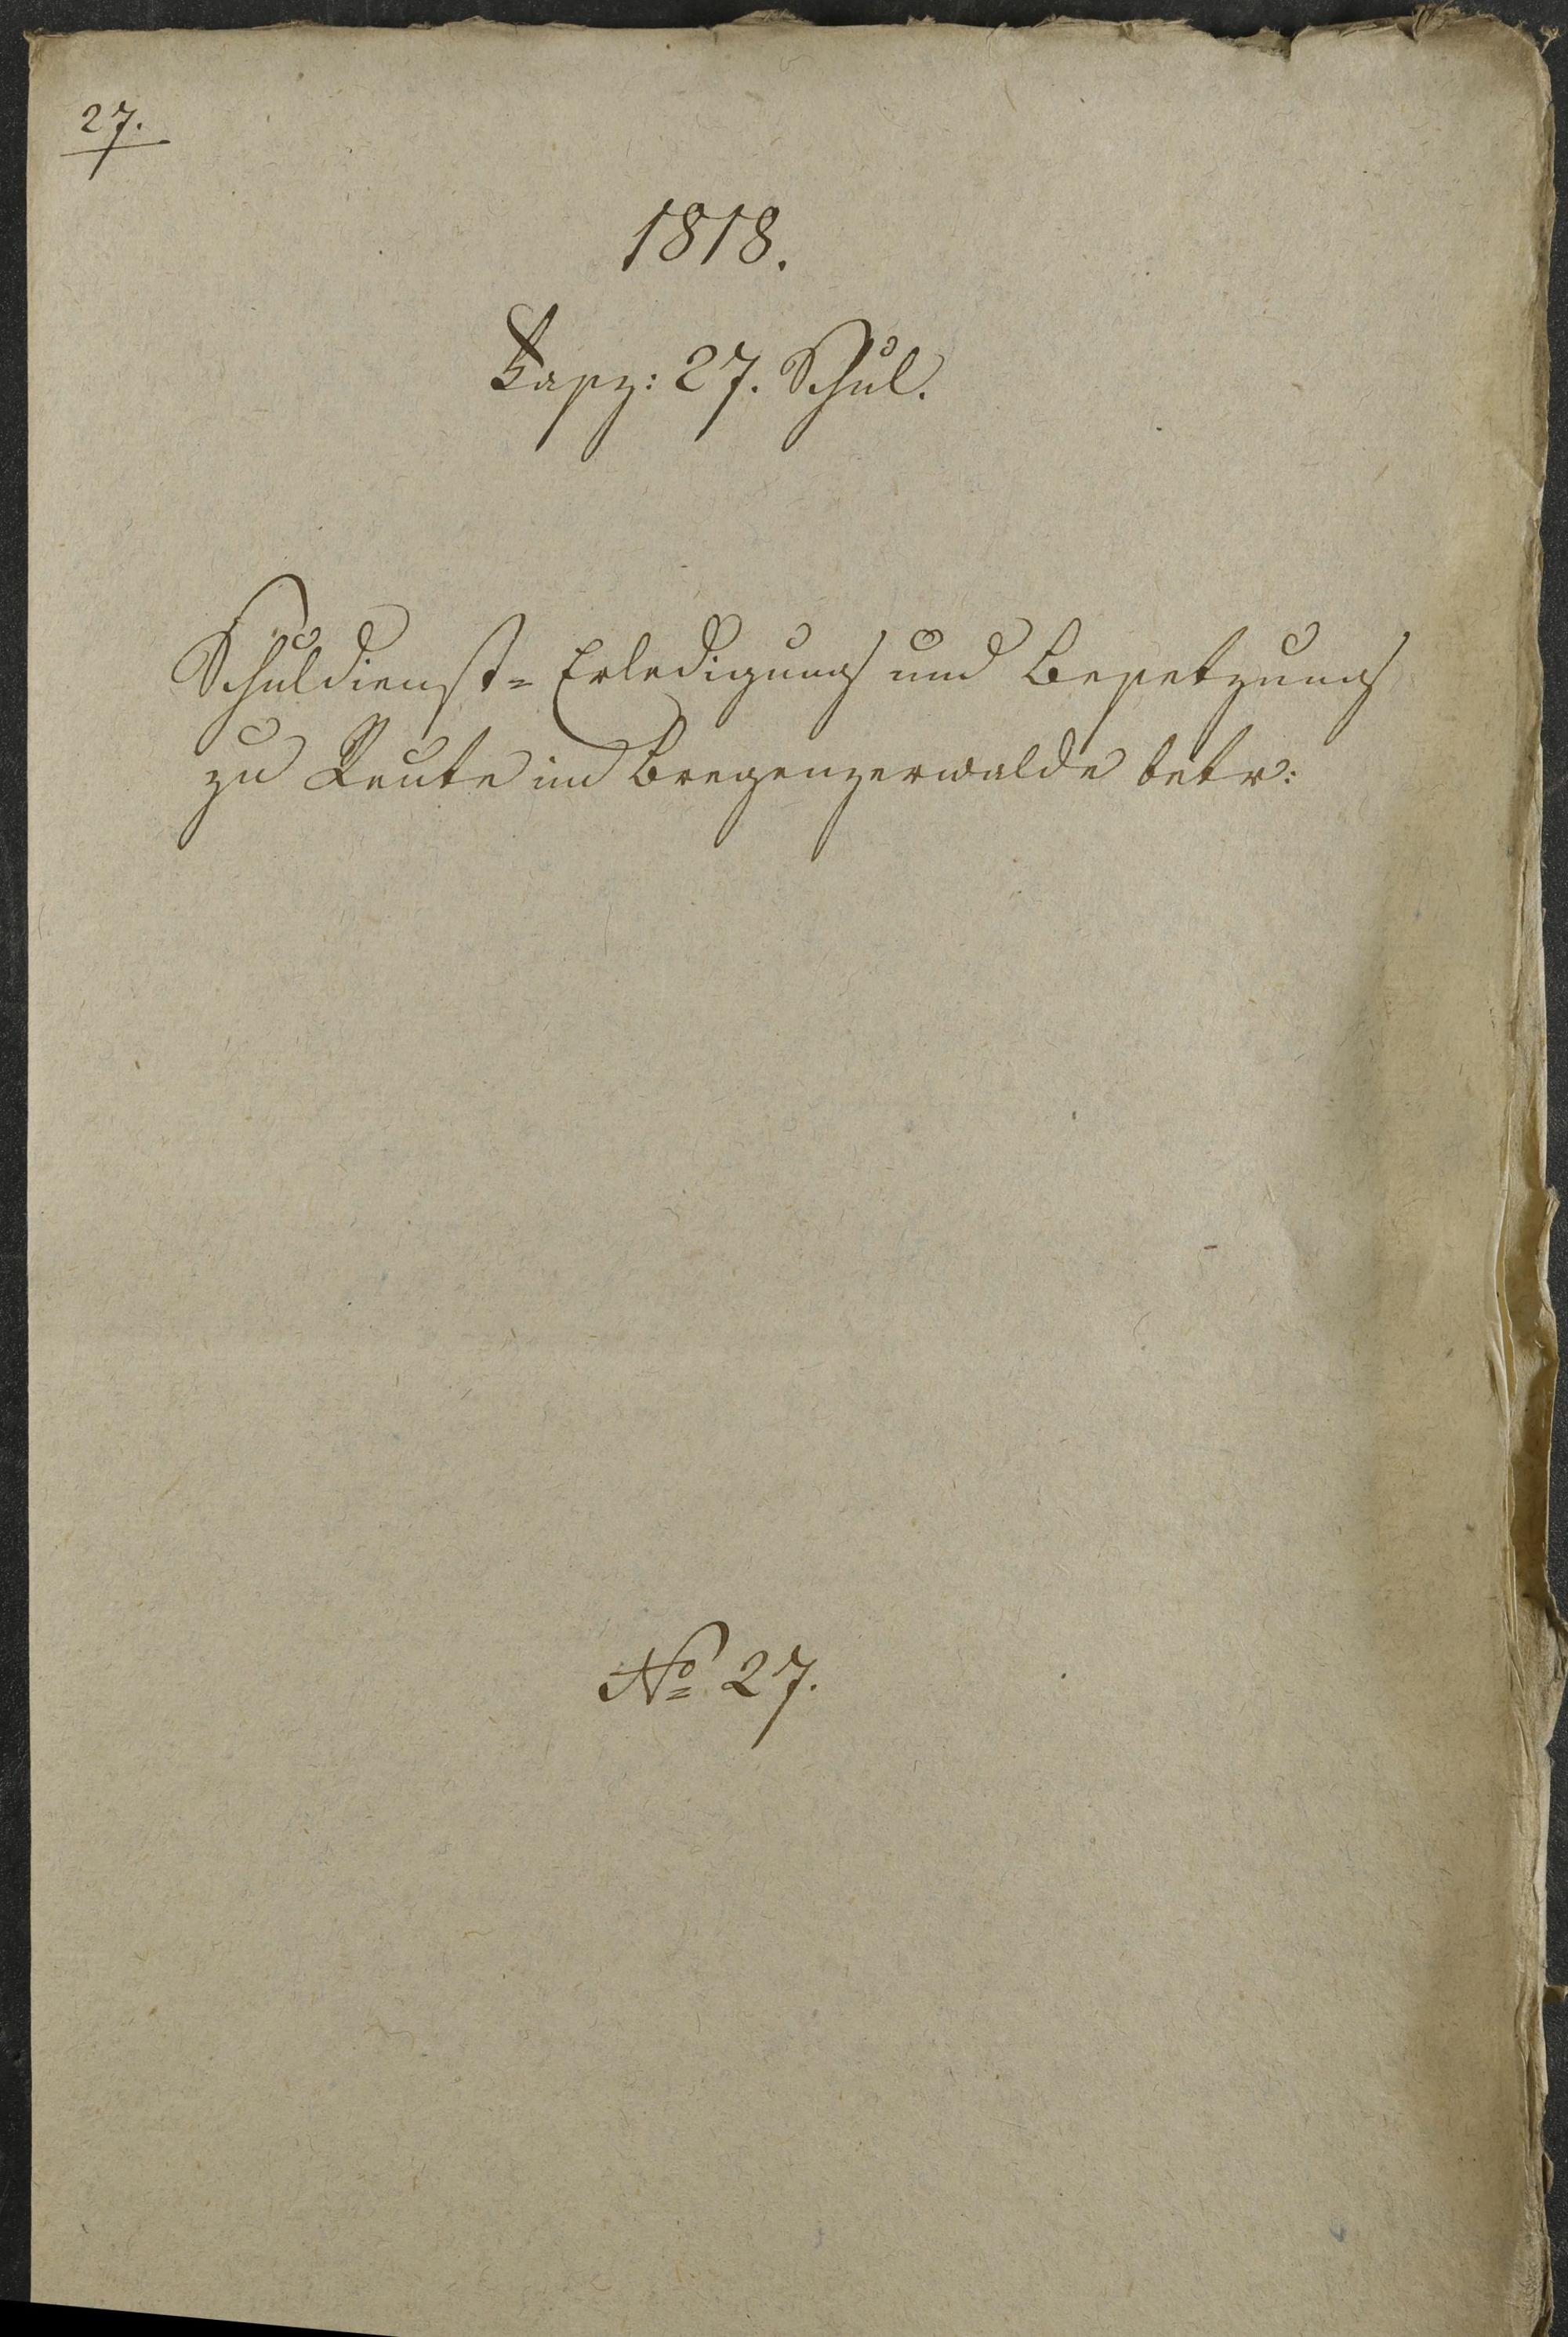 27.
1818.
Fasz: 27. Schul.
Schuldienst=Erledigung und Besetzung
zu Reute im Bregenzerwalde betr:
No 27.